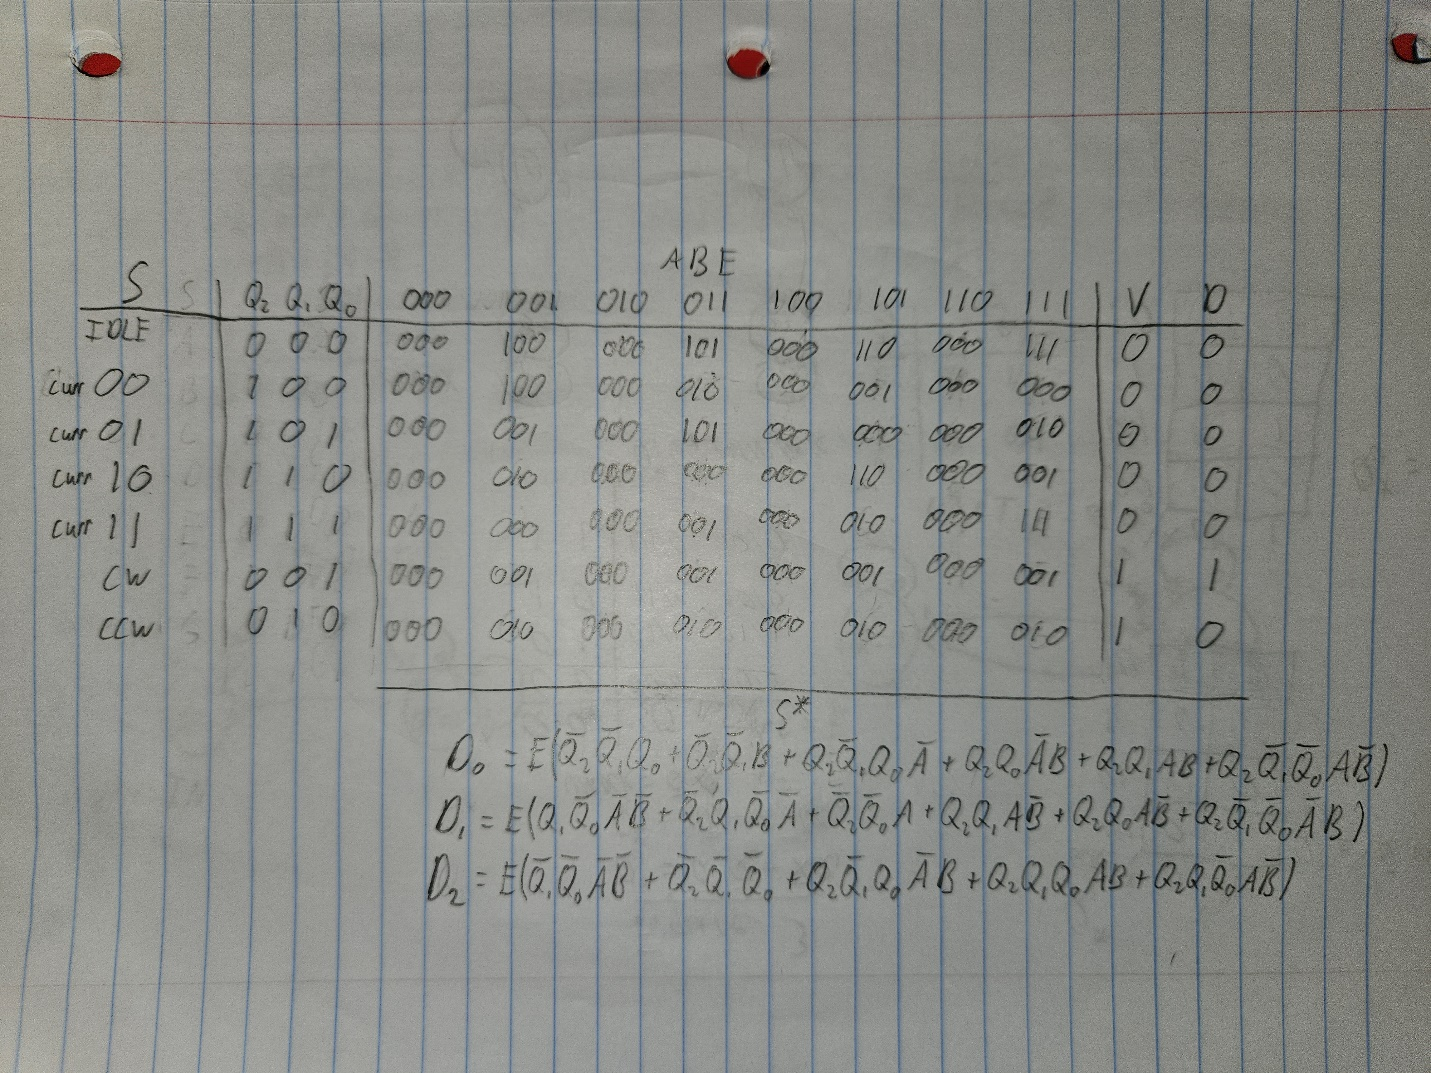 A B E
S Q₂ Q₁ Q₀ 000 001 010 011 100 101 110 111 V D
IDLE 0 0 0 000 100 000 101 000 110 000 111 0 0
curr 00 1 0 0 000 100 000 010 000 001 000 000 0 0
curr 01 1 0 1 000 001 000 101 000 000 000 010 0 0
curr 10 1 1 0 000 010 000 000 000 110 000 001 0 0
curr 11 1 1 1 000 000 000 001 000 010 000 111 0 0
CW 0 0 1 000 001 000 001 000 001 000 001 1 1
CCW 0 1 0 000 010 000 010 000 010 000 010 1 0
S*
D₀ = E(Q̅₂Q̅₁Q₀ + Q̅₂Q̅₁B + Q₂Q̅₁Q₀A̅ + Q₂Q₀A̅B + Q₂Q₁AB + Q₂Q̅₁Q̅₀AB̅)
D₁ = E(Q₁Q̅₀A̅B̅ + Q̅₂Q₁Q̅₀A̅ + Q̅₂Q̅₀A + Q₂Q₁AB̅ + Q₂Q₀AB̅ + Q₂Q̅₁Q̅₀A̅B)
D₂ = E(Q̅₁Q̅₀A̅B̅ + Q̅₂Q̅₁Q̅₀ + Q₂Q̅₁Q₀A̅B + Q₂Q₁Q₀AB + Q₂Q₁Q̅₀AB̅)